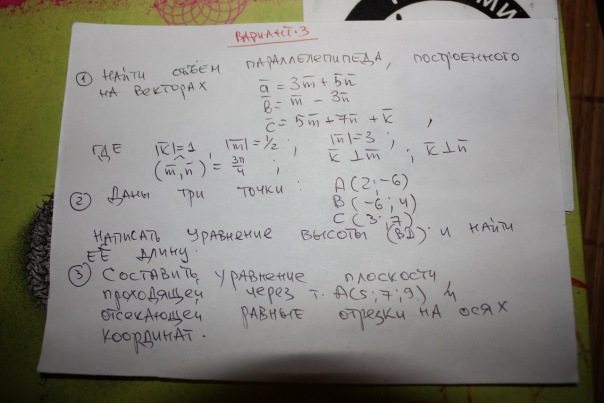 ВАРИАНТ·3
① НАЙТИ ОБЪЕМ ПАРАЛЛЕЛЕПИПЕДА, ПОСТРОЕННОГО
НА ВЕКТОРАХ
a̅ = 3m̅ + 5n̅
b̅ = m̅ - 3n̅
c̅ = 5m̅ + 7n̅ + k̅ ,
ГДЕ |k̅|=1 , |m̅|=1/2 ; |n̅|=3 ;
(m̅,n̅) = 3π/4 ; k̅⊥m̅ ; k̅⊥n̅
② ДАНЫ ТРИ ТОЧКИ: A(2;-6)
B(-6;4)
C(3;7)
НАПИСАТЬ УРАВНЕНИЕ ВЫСОТЫ (BD) И НАЙТИ
ЕЁ ДЛИНУ.
③ СОСТАВИТЬ УРАВНЕНИЕ ПЛОСКОСТИ
ПРОХОДЯЩЕЙ ЧЕРЕЗ т. A(5;7;9) И
ОТСЕКАЮЩЕЙ РАВНЫЕ ОТРЕЗКИ НА ОСЯХ
КООРДИНАТ.